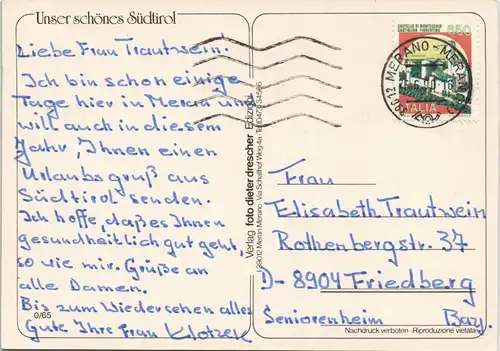 Unser schönes Südtirol
Liebe Frau Trautwein!
Ich bin schon einige
Tage hier in Meran und
will auch in diesem
Jahr, Ihnen einen
Urlaubsgruß aus
Südtirol senden.
Ich hoffe, daß es Ihnen
gesundheitlich gut geht,
so wie mir. Grüße an
alle Damen.
Bis zum Wiedersehen alles
Gute Ihre Frau Klotzek
0/65
Verlag foto dieter drescher Edizioni
I-39012 Meran Merano Via Schaffhof Weg 4a Tel. 0473/34566
650
CASTELLO DI MONTECCHIO
CASTIGLION FIORENTINO
ITALIA
39012 MERANO - MERAN
Frau
Elisabeth Trautwein
Rothenbergstr. 37
D- 8904 Friedberg
Seniorenheim Bay.
Nachdruck verboten - Riproduzione vietata